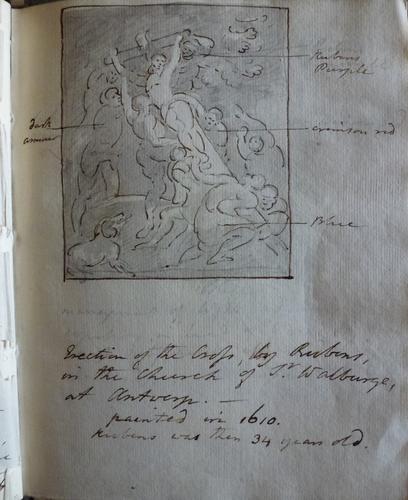 Rubens
Purple
dark
crimson red
Blue
Erection of the Cross, by Rubens,
in the Church of St. Walburge,
at Antwerp. —
painted in 1610.
Rubens was then 34 years old.